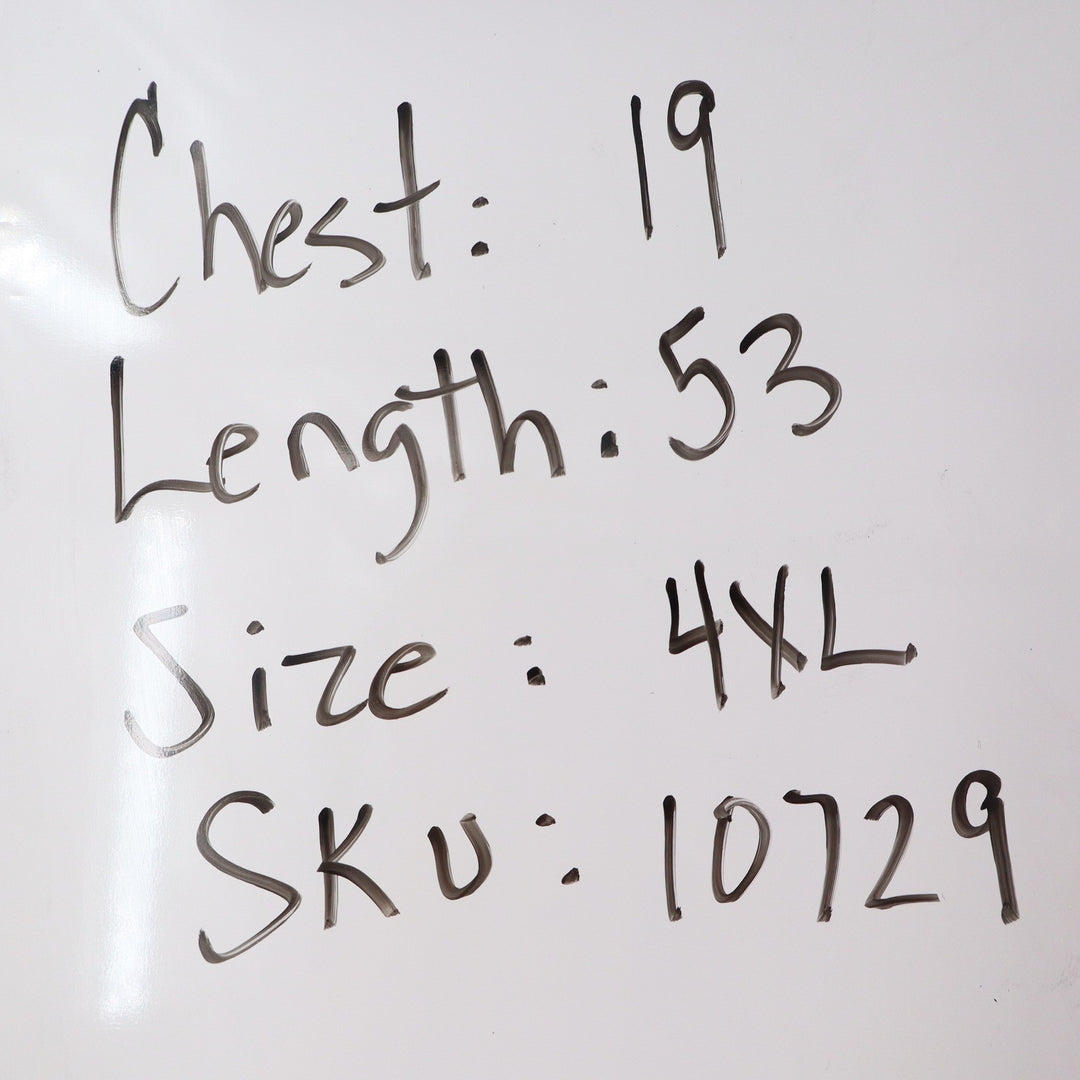 Chest: 19
Length: 53
Size: 4XL
SKU: 10729